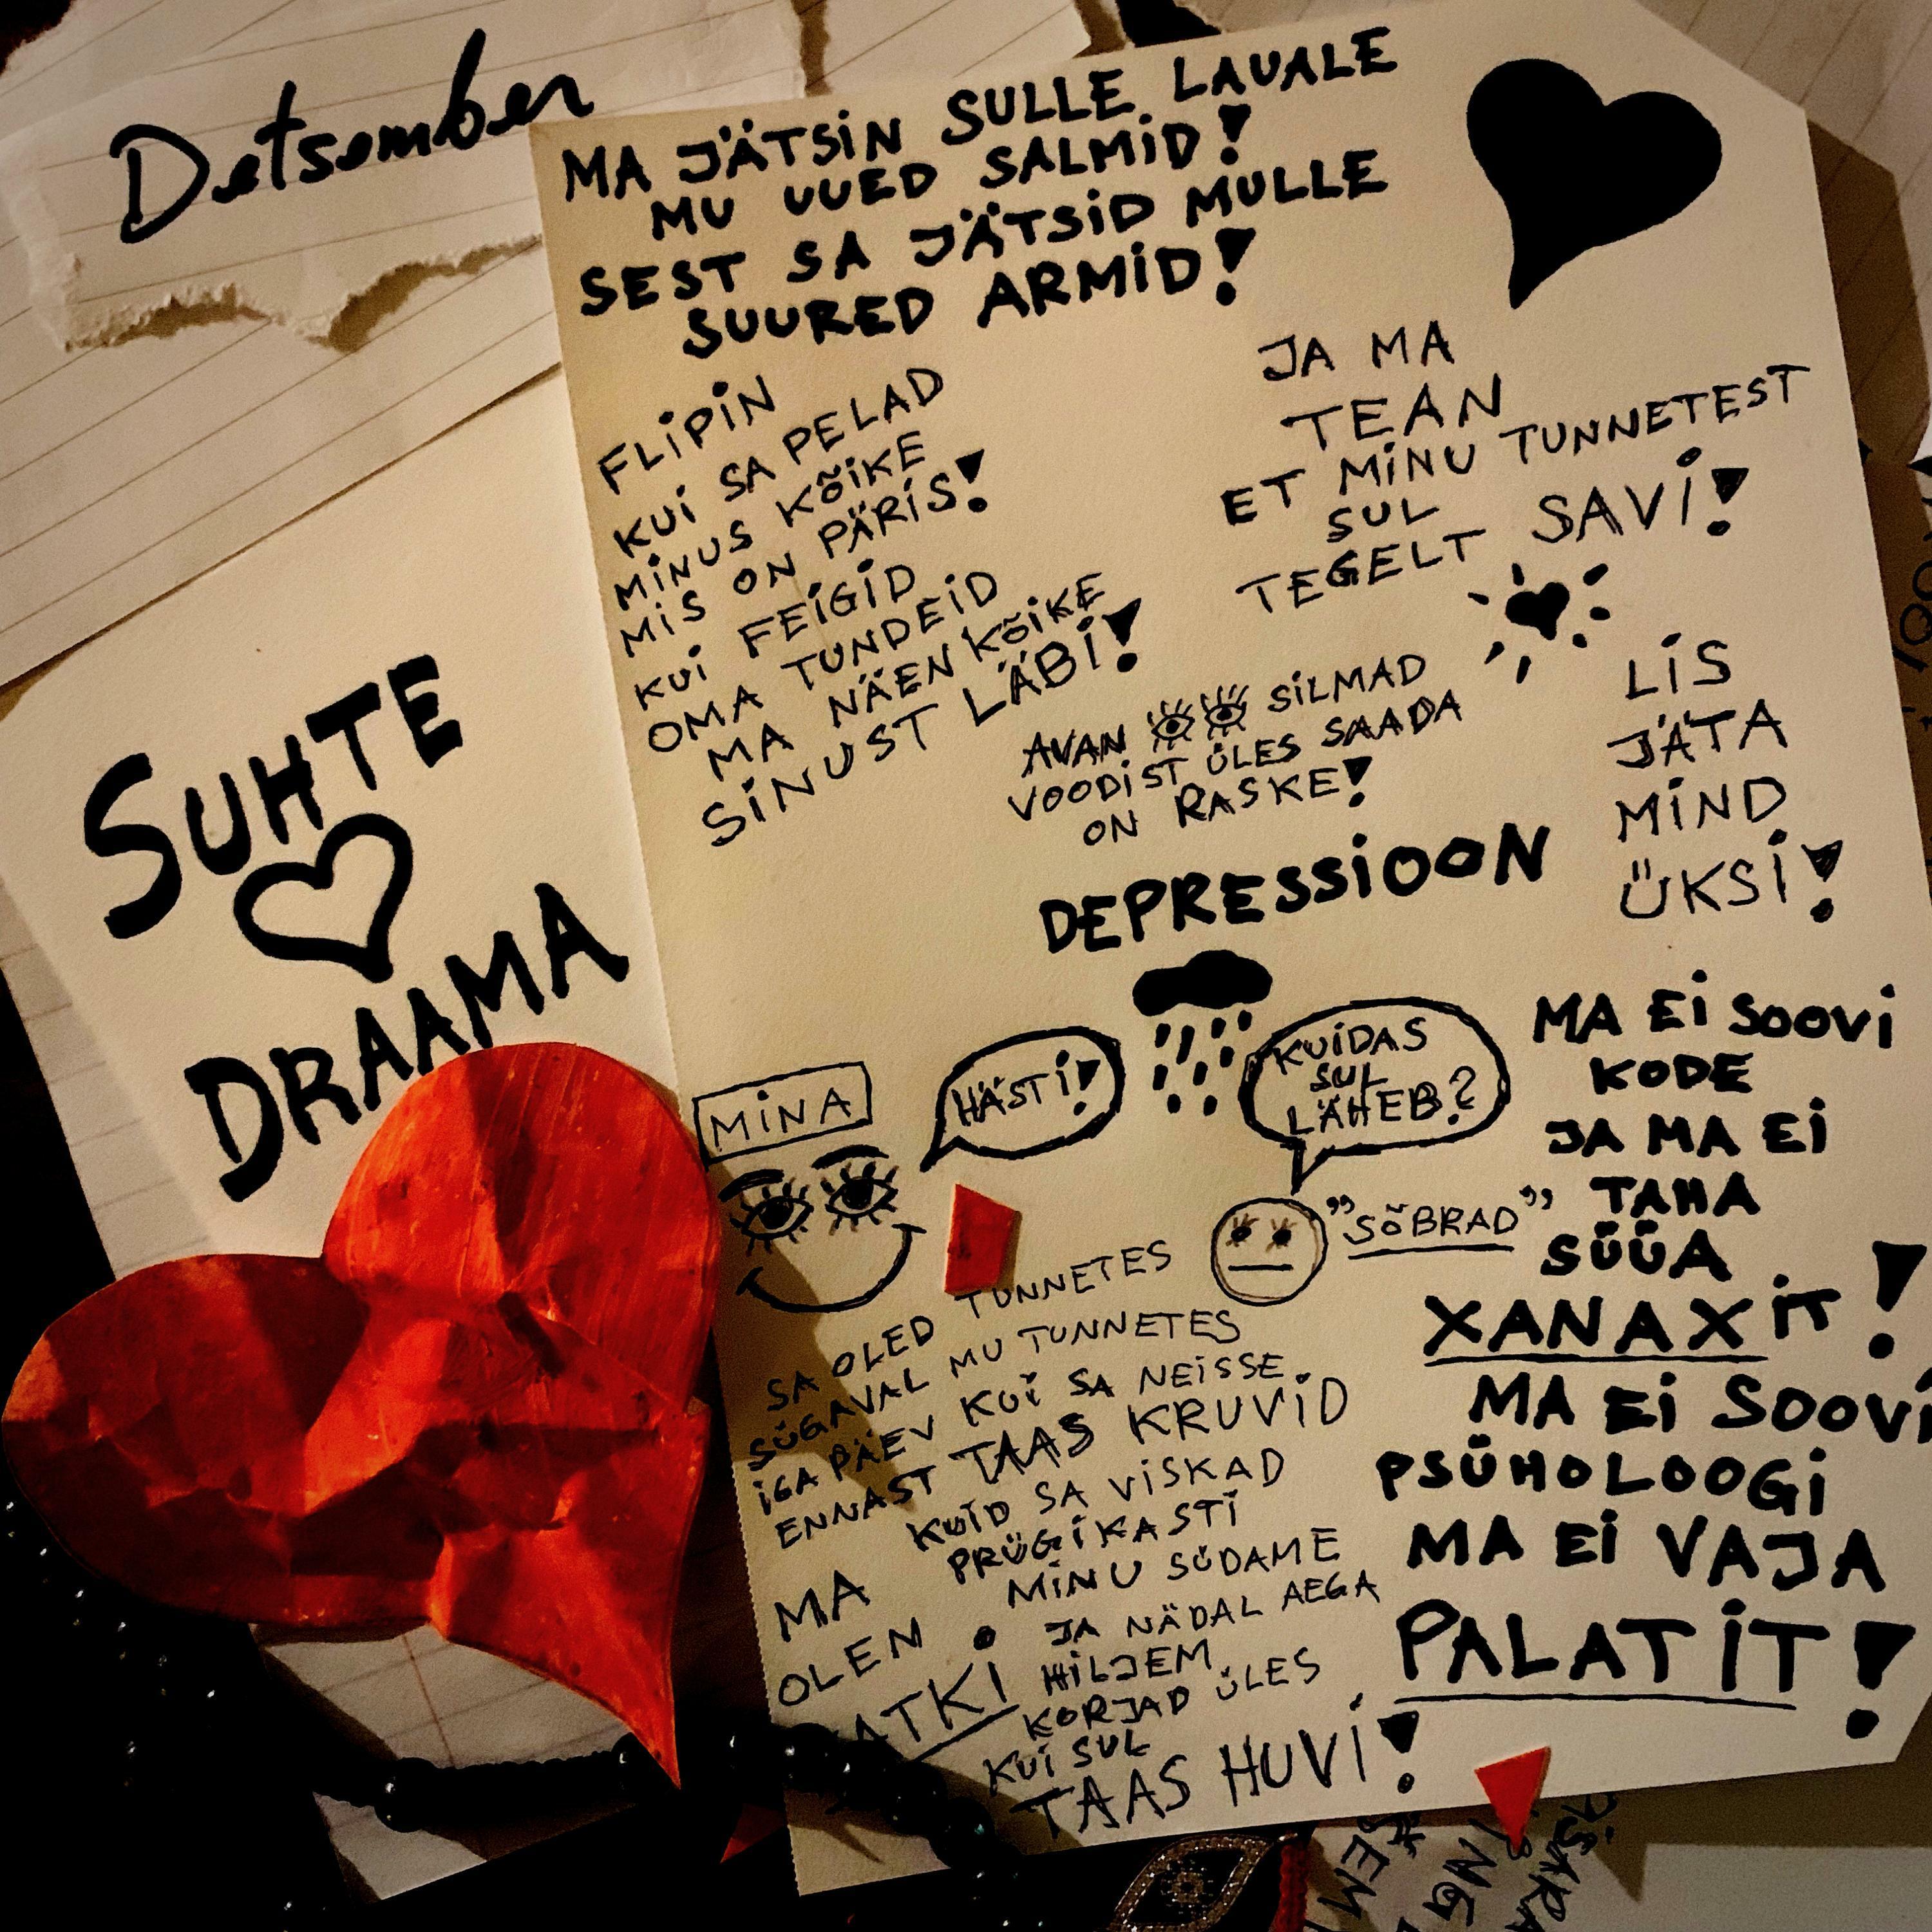 Detsember
SUHTE
DRAAMA
MA JÄTSIN SULLE LAUALE
MU UUED SALMID!
SEST SA JÄTSID MULLE
SUURED ARMID!
FLIPIN
KUI SA PELAD
MINUS KÕIKE
MIS ON PÄRIS!
KUI FEIGID
OMA TUNDEID
MA NÄEN KÕIKE
SINUST LÄBI!
JA MA
TEAN
ET MINU TUNNETEST
SUL
TEGELT SAVI!
AVAN SILMAD
VOODIST ÜLES SAADA
ON RASKE!
LIS
JÄTA
MIND
ÜKSI!
DEPRESSIOON
MINA
HÄSTI!
KUIDAS
SUL
LÄHEB?
"SÕBRAD"
MA EI SOOVI
KODE
JA MA EI
TAHA
SÜÜA
XANAXIT!
MA EI SOOVI
PSÜHOLOOGI
MA EI VAJA
PALATIT!
SA OLED TUNNETES
SÜGAVAL MU TUNNETES
IGA PÄEV KUI SA NEISSE
ENNAST TAAS KRUVID
KUID SA VISKAD
PRÜGIKASTI
MINU SÜDAME
JA NÄDAL AEGA
HILJEM
KORJAD ÜLES
KUI SUL
TAAS HUVI!
MA
OLEN